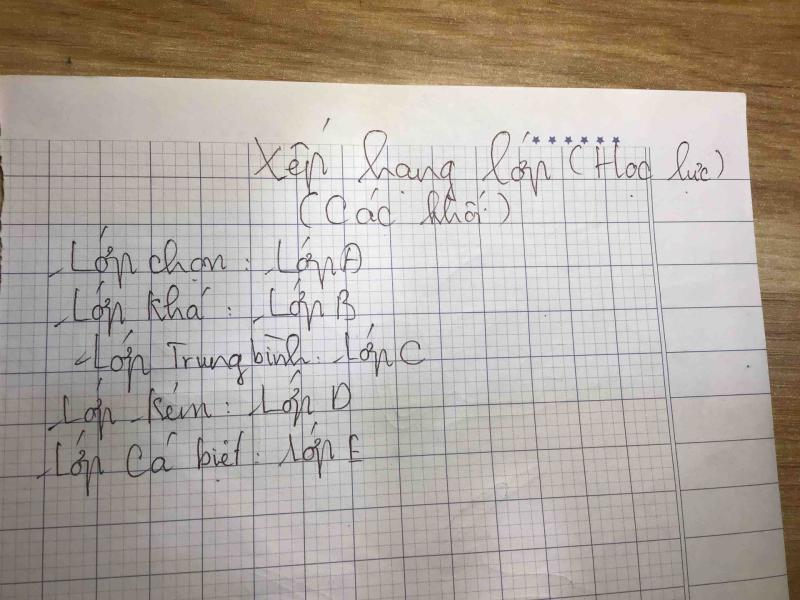 Xếp hạng lớp (Học lực)
(Các khối)
Lớp chọn: Lớp A
Lớp khá: Lớp B
Lớp Trung bình: Lớp C
Lớp kém: Lớp D
Lớp Cá biệt: Lớp E